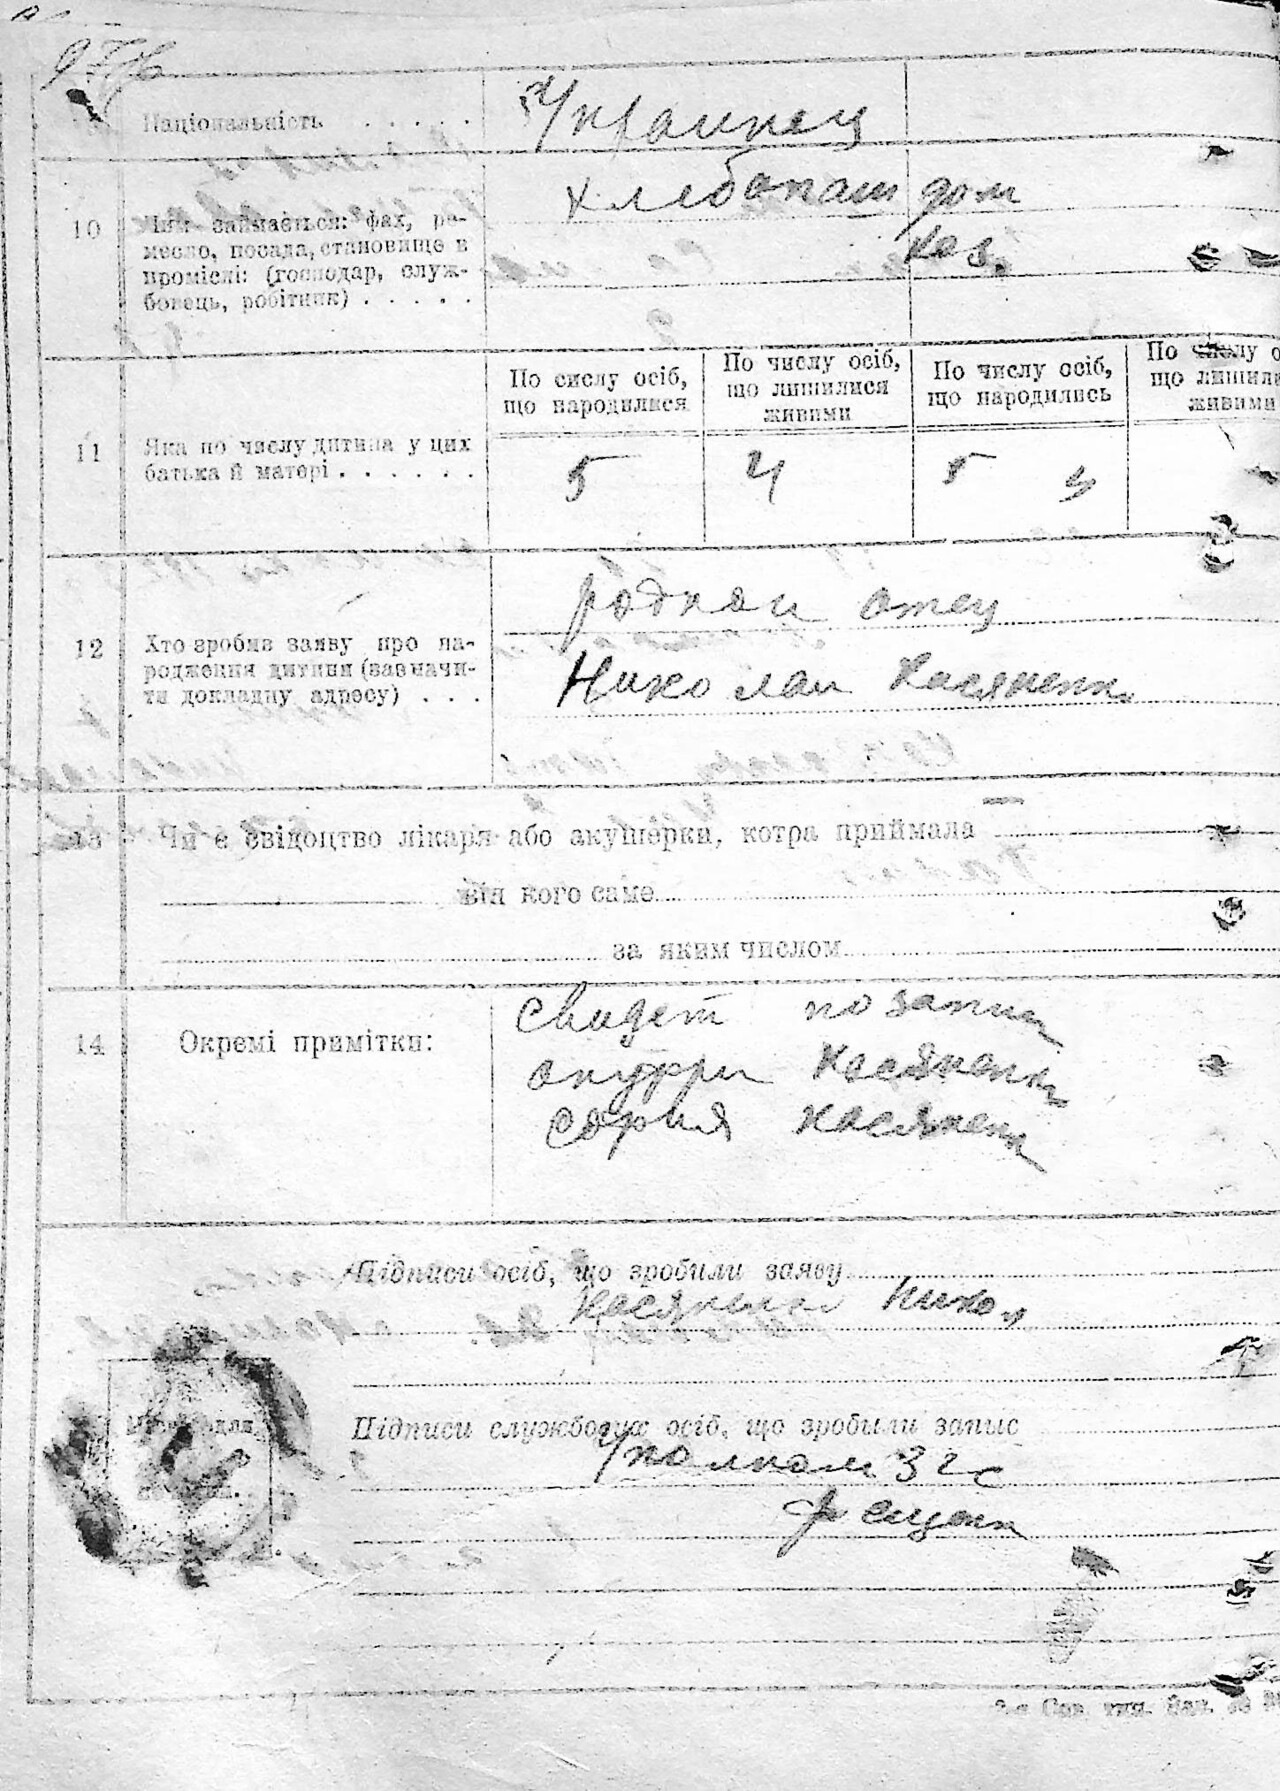 Національність . . . . .
Украинец
10
Чим займається: фах, ре-
месло, посада, становище в
промислі: (господар, служ-
бовець, робітник) . . . . .
хлебопаш дом
хоз.
11
Яка по числу дитина у цих
батька й матері . . . . . .
По сислу осіб,
що народилися
По числу осіб,
що лишилися
живими
По числу осіб,
що народились
По числу о
що лишили
живими
5 4 5 4
12
Хто зробив заяву про на-
родження дитини (зазначи-
ти докладну адресу) . . .
родной отец
Николай Касяненко
13 Чи є свідоцтво лікаря або акушерки, котра приймала —
від кого саме
за яким числом
14
Окремі примітки:
свидет по запис
Касяненко
София Касяненк
Підписи осіб, що зробили заяву
Касяненко Никол
Підписи службових осіб, що зробили запис